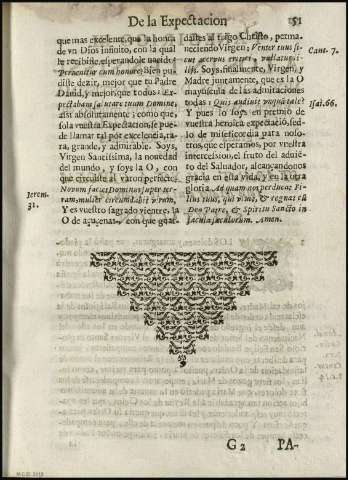 De la Expectacion 51
que mas excelente, que la honra
de vn Dios infinito, con la qual
le recibiste, esperandole nacido:
cum honore; bien pu-
diste dezir, mejor que tu Padre
David, y mejor que todos: Ex-
pectabam salutare tuum Domine,
assi absolutamente; como que,
sola vuestra Expectacion, se pue-
de llamar tal por excelencia, ra-
ra, grande, y admirable. Soys,
Virgen Santissima, la novedad
del mundo, y soys la O, con
que circuiste al varon perfecto.
Novum faciet Dominus super ter-
ram; mulier circumdabit virum,
Y es vuestro sagrado vientre, la
O de açuçenas, con que guar-
Jerem.
31.
dastes al trigo Christo, perma-
neciendo Virgen; Venter tuus si-
cut acervus tritici, vallatus li-
lijs. Soys, finalmente, Virgen, y
Madre juntamente, que es la O
mayuscula de las admiraciones
todas: Quis audivit vnquã tale?
Y pues lo soys en premio de
vuestra heroica expectaciõ, sed-
lo de misericordia para noso-
tros, que esperamos, por vuestra
intercession, el fruto del advie-
to del Salvador, alcançandonos
gracia en esta vida, y en la otra
gloria. Ad quam nos perducat Fi-
lius tuus, qui vivit, & regnat cũ
Deo Patre, & Spiritu Sancto in
sæcula sæculorum. Amen.
Cant. 7.
Isai. 66.
G 2 PA-